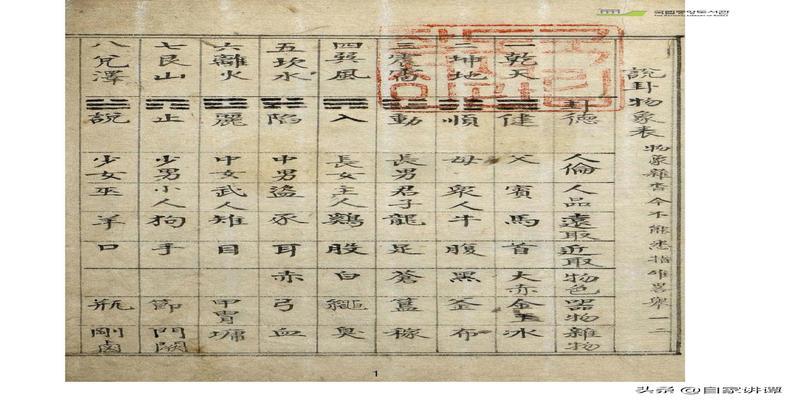 국립중앙도서관
THE NATIONAL LIBRARY OF KOREA
說卦物象表 物象雜書今不能悉指畧舉一二
卦德 人倫 人品 遠取 近取 物色 器物 雜物
一乾天 健 父 賓 馬 首 大赤 金玉 冰
二坤地 順 母 衆人 牛 腹 黑 釜 布
三震雷 動 長男 君子 龍 足 蒼 簋 稼
四巽風 入 長女 主人 鷄 股 白 繩 臭
五坎水 陷 中男 盜 豕 耳 赤 弓 血
六離火 麗 中女 武人 雉 目 甲胄 墉
七艮山 止 少男 小人 狗 手 節 門闕
八兌澤 說 少女 巫 羊 口 瓶 剛鹵
1
头条 @自家讲谭